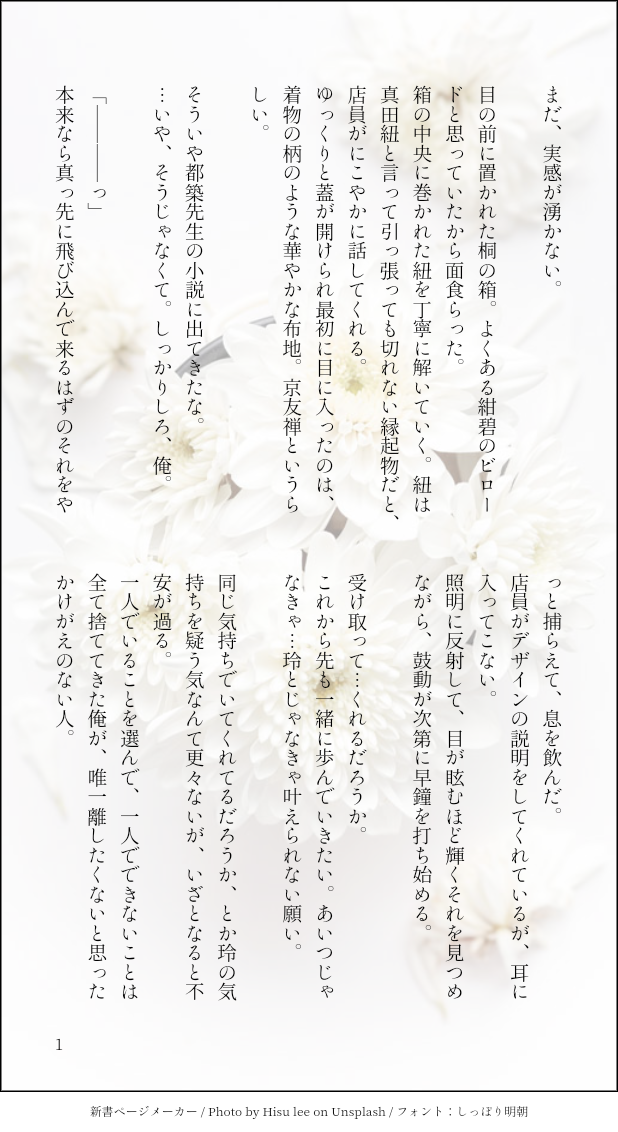 まだ、実感が湧かない。
目の前に置かれた桐の箱。よくある紺碧のビロー
ドと思っていたから面食らった。
箱の中央に巻かれた紐を丁寧に解いていく。紐は
真田紐と言って引っ張っても切れない縁起物だと、
店員がにこやかに話してくれる。
ゆっくりと蓋が開けられ最初に目に入ったのは、
着物の柄のような華やかな布地。京友禅というら
しい。
そういや都築先生の小説に出てきたな。
…いや、そうじゃなくて。しっかりしろ、俺。
「――――っ」
本来なら真っ先に飛び込んで来るはずのそれをや
っと捕らえて、息を飲んだ。
店員がデザインの説明をしてくれているが、耳に
入ってこない。
照明に反射して、目が眩むほど輝くそれを見つめ
ながら、鼓動が次第に早鐘を打ち始める。
受け取って…くれるだろうか。
これから先も一緒に歩んでいきたい。あいつじゃ
なきゃ…玲とじゃなきゃ叶えられない願い。
同じ気持ちでいてくれてるだろうか、とか玲の気
持ちを疑う気なんて更々ないが、いざとなると不
安が過る。
一人でいることを選んで、一人でできないことは
全て捨ててきた俺が、唯一離したくないと思った
かけがえのない人。
1
新書ページメーカー / Photo by Hisu lee on Unsplash / フォント：しっぽり明朝